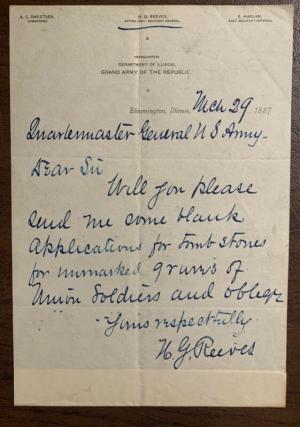 A. C. SWEETSER, H. G. REEVES, E. HARLAN,
COMMANDER. ASST. ADJUTANT GENERAL.
HEADQUARTERS
DEPARTMENT OF ILLINOIS,
GRAND ARMY OF THE REPUBLIC
Bloomington, Illinois, Mch 29 1887
Quartermaster General U S Army-
Dear Sir
Will you please
send me some blank
applications for tombstones
for unmarked graves of
Union Soldiers and oblige
Yours respectfully
H. G. Reeves